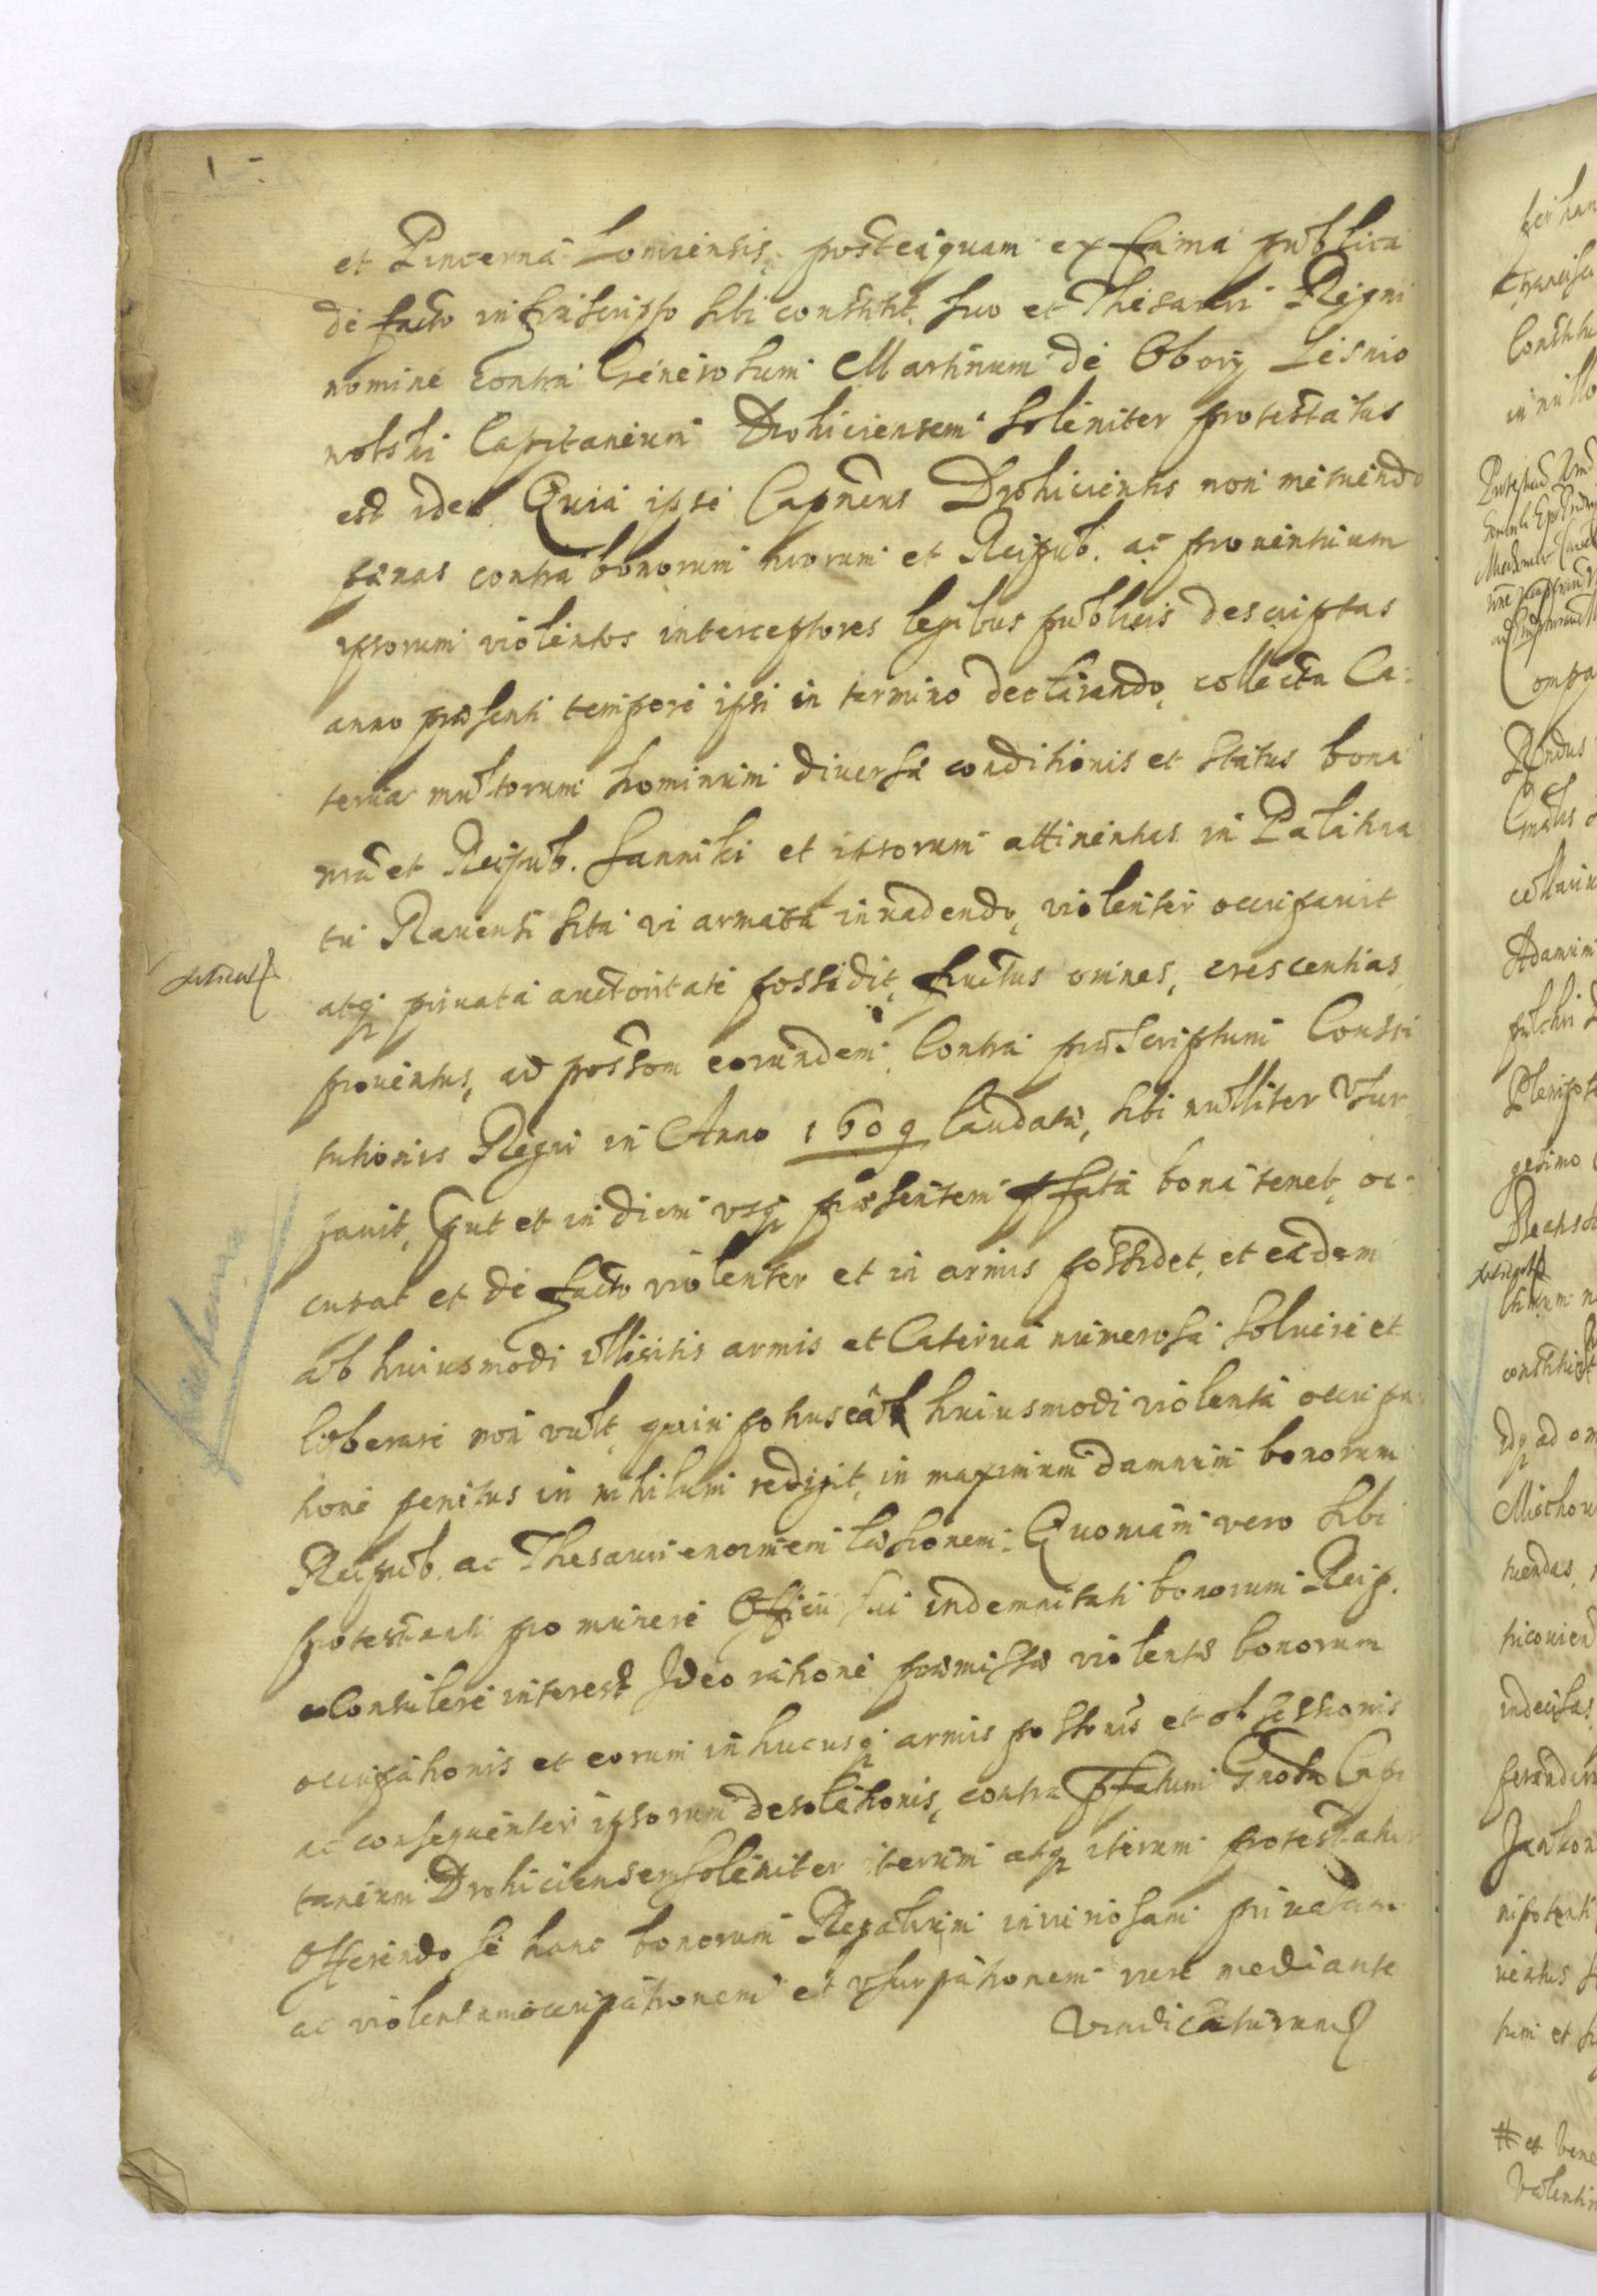 et Pincerna Lomzensis, posteaquam ex fama publica
de facto infrascripto sibi constitit, suo et Thesauri Regni
nomine contra Generosum Martinum de Obory Lesnio
wolski Capitaneum Drohiciensem solemniter protestatus
est ideo Quia ipse Capneus Drohiciensis non metuendo
pænas contra bonorum suorum et Reipub. ac prouentuum
ipsorum violentos interceptores legibus publicis descriptas
anno præsenti tempore ipsi in termino declarando, collecta Ca-
terua multorum hominum diuersæ conditionis et status bona
et Reipub. Sanniki et ipsorum attinentias in Palatina
tu Rauensi sita vi armata inuadendo, violenter occupauit
atq priuata auctoritate possedit, fructus omnes, crescentias
prouentus, ad possom eorundem, Contra præscriptum Consti
tutionis Regni in Anno 1609 laudatæ, sibi nulliter Vsur
pauit, Put et in diem vsq præsentem pfata bona tenet, oc-
cupat et de facto violenter et in armis possidet, et eadem
ab huiusmodi illicitis armis et Caterua numerosa soluere et
liberare non vult, quin potius ea huiusmodi violenta occupa-
tione penitus in nihilum redigit, in maximum damnum bonorum
Reipub. ac Thesauri enormem læsionem. Quoniam vero sibi
protestanti pro munere Officii sui indemnitati bonorum Reip.
Consulere interest Ideo ratione præmissæ violentæ bonorum
occupationis et eorum in hucusq armis possionis et obsessionis
ac consequenter ipsorum desolationis, contra pfatum Gnosum Capi
taneum Drohiciensem solemniter iterum atq iterum protestatur
Offerendo se hanc bonorum Regalium iniuriosam priuatam
ac violentam occupationem et vsurpationem iure mediante
Vindicaturum